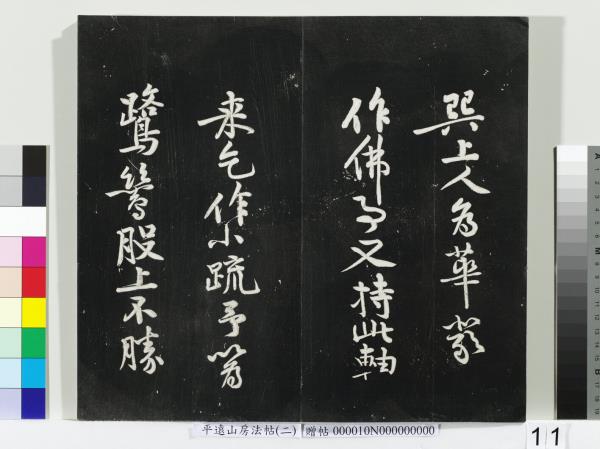 巽上人為華嚴
作佛事又持此軸
来乞作小疏予
鷺鷥股上不勝
平遠山房法帖(二) 贈帖 000010N000000000
11